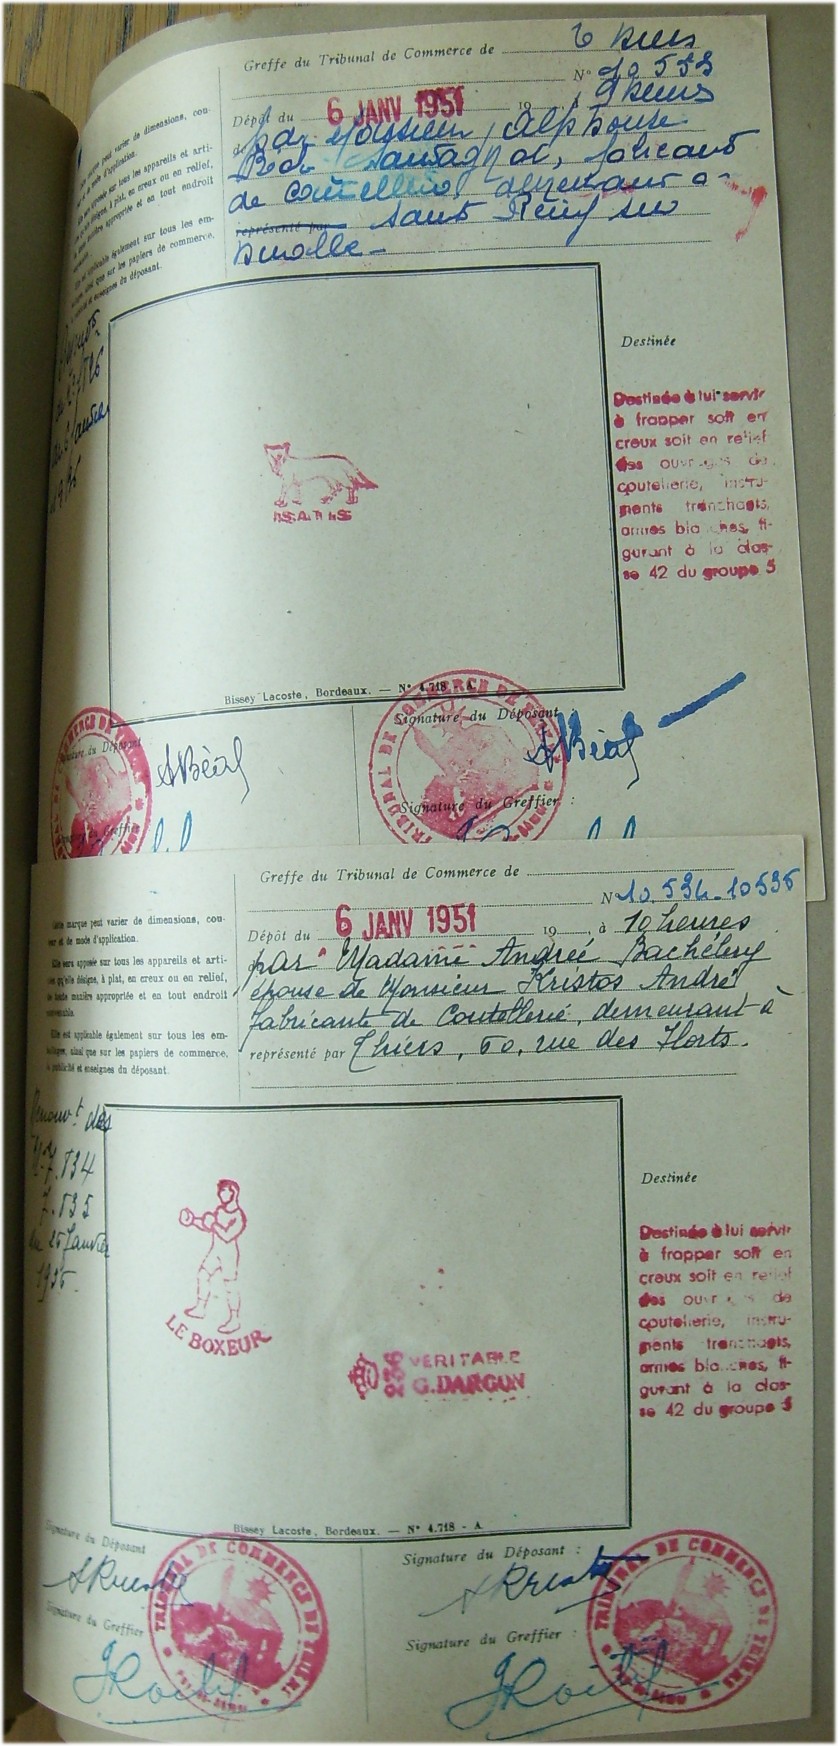 Greffe du Tribunal de Commerce de
N° 10 533
Dépôt du 6 JANV 1951 19 , à 9 heures
par Monsieur Alphonse
fabricant
de coutellerie, demeurant à
représenté par Saint Rémy sur
Durolle -
marque peut varier de dimensions, cou-
de mode d'application.
apposée sur tous les appareils et arti-
désigne, à plat, en creux ou en relief,
manière appropriée et en tout endroit
est applicable également sur tous les em-
ainsi que sur les papiers de commerce,
et enseignes du déposant.
Destinée
Destinée à lui servir
à frapper soit en
creux soit en relief
des ouvrages de
coutellerie, instru-
ments tranchants,
armes blanches, fi-
gurant à la clas-
se 42 du groupe 5
ISATIS
Bissey Lacoste, Bordeaux. — N° 4.718 - A.
Signature du Déposant
ABéal
Signature du Déposant :
ABéal
Signature du Greffier
Signature du Greffier :
TRIBUNAL DE COMMERCE DE
Greffe du Tribunal de Commerce de
N° 10.534-10535
Dépôt du 6 JANV 1951 19 , à 10 heures
par Madame Andrée Bachélery
épouse de Monsieur Kristos André
fabricante de Coutellerie, demeurant à
représenté par Thiers, 60, rue des Horts.
Cette marque peut varier de dimensions, cou-
leur et de mode d'application.
Elle sera apposée sur tous les appareils et arti-
cles qu'elle désigne, à plat, en creux ou en relief,
de toute manière appropriée et en tout endroit
convenable.
Elle est applicable également sur tous les em-
ballages, ainsi que sur les papiers de commerce,
de publicité et enseignes du déposant.
Renouv.t des
N° 7.834
7.835
du 25 Janvier
1936.
Destinée
Destinée à lui servir
à frapper soit en
creux soit en relief
des ouvrages de
coutellerie, instru-
ments tranchants,
armes blanches, fi-
gurant à la clas-
se 42 du groupe 5
LE BOXEUR
VERITABLE
G.DARGON
Bissey Lacoste, Bordeaux. — N° 4.718 - A.
Signature du Déposant
Signature du Déposant :
Signature du Greffier
Signature du Greffier :
TRIBUNAL DE COMMERCE DE THIERS
PUY-DE-DOME
TRIBUNAL DE COMMERCE DE THIERS
PUY-DE-DOME